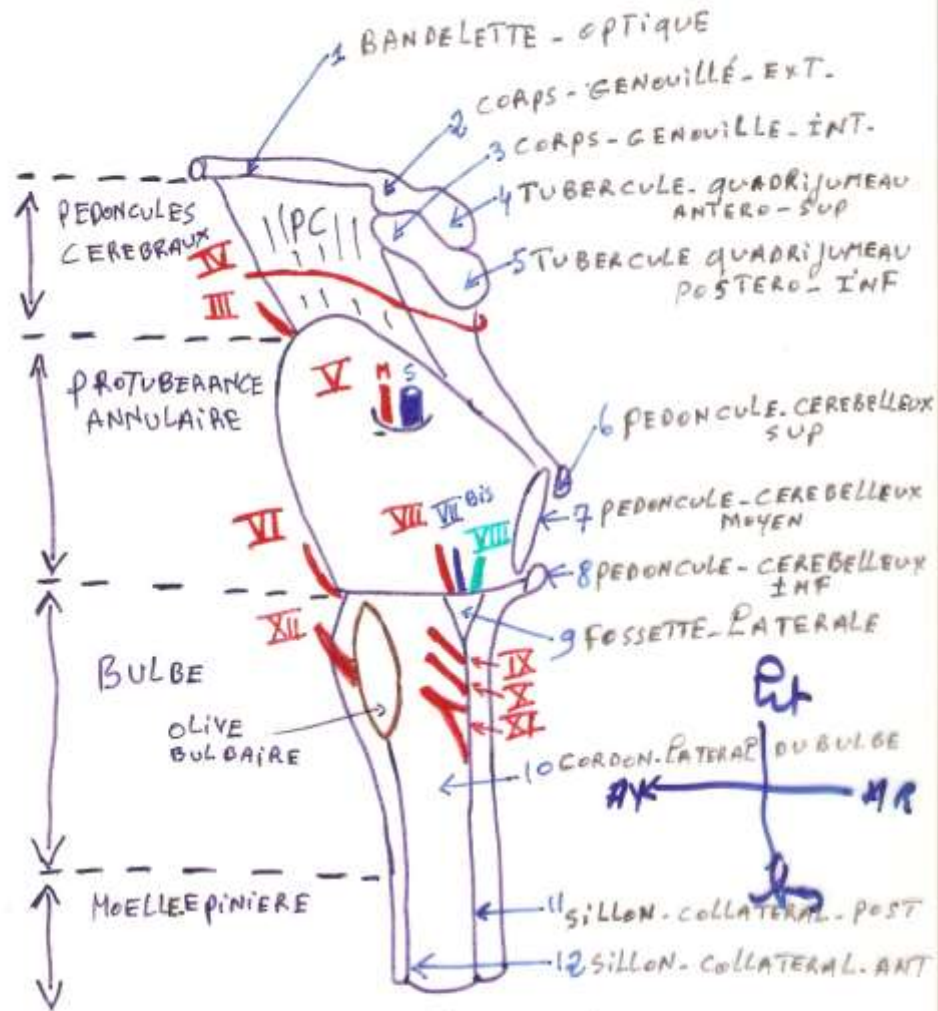 1 BANDELETTE - OPTIQUE
2 CORPS - GENOUILLÉ - EXT.
3 CORPS - GENOUILLE - INT.
4 TUBERCULE - QUADRIJUMEAU
ANTERO - SUP
5 TUBERCULE QUADRIJUMEAU
POSTERO - INF
PEDONCULES
CEREBRAUX
PC
IV
III
PROTUBERANCE
ANNULAIRE
V
M S
6 PEDONCULE - CEREBELLEUX
SUP
VI
VII VII Bis
VIII
7 PEDONCULE - CEREBELLEUX
MOYEN
8 PEDONCULE - CEREBELLEUX
INF
9 FOSSETTE - LATERALE
XII
IX
X
XI
BULBE
OLIVE
BULBAIRE
10 CORDON - LATERAL DU BULBE
AV AR
MOELLE EPINIERE
11 SILLON - COLLATERAL - POST
12 SILLON - COLLATERAL - ANT